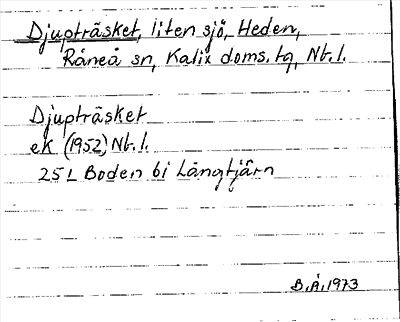 Djupträsket, liten sjö, Heden,
Råneå sn, Kalix doms. tg, Nb. l.
Djupträsket
ek (1952) Nb. l.
25 L Boden 6i Långtjärn
B. Å. 1973